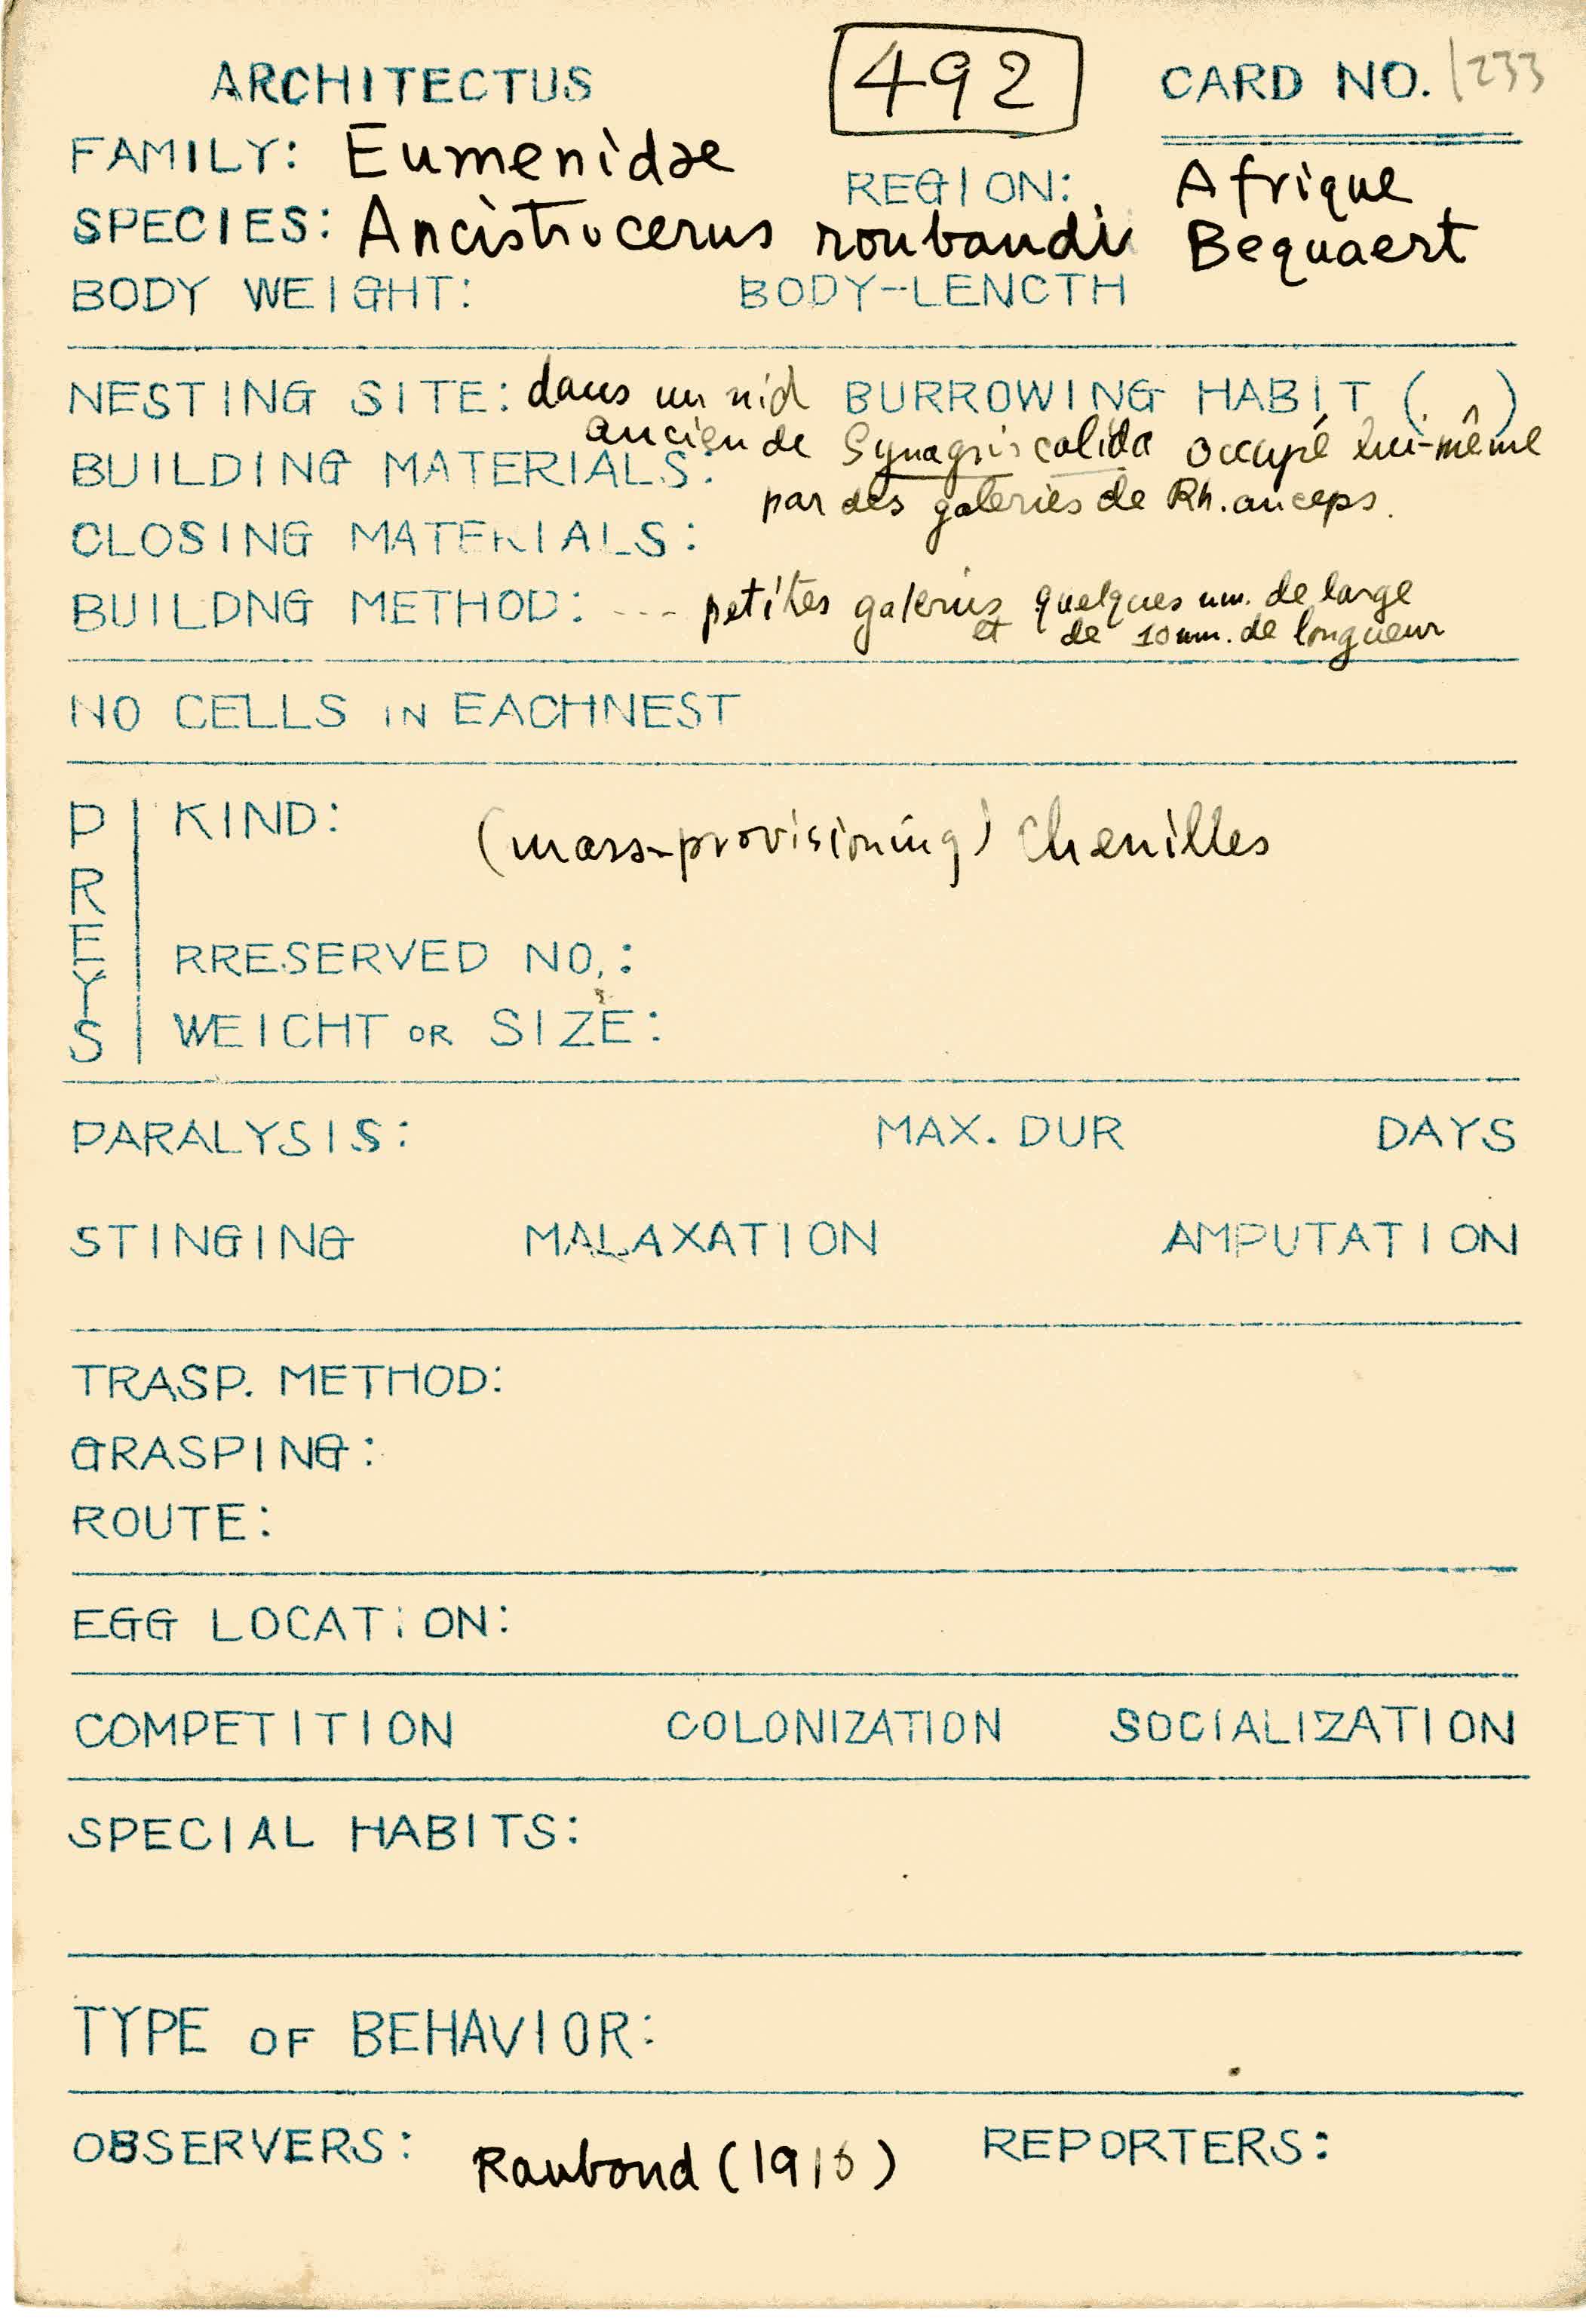 ARCHITECTUS 492 CARD NO. 1233
FAMILY: Eumenidae
REGION: Afrique
SPECIES: Ancistrocerus roubaudi Bequaert
BODY WEIGHT: BODY-LENCTH
NESTING SITE: dans un nid BURROWING HABIT ( )
ancien de Synagris calida occupé lui-même
BUILDING MATERIALS:
par des galeries de Rh. anceps.
CLOSING MATERIALS:
BUILDNG METHOD: --- petites galeries quelques mm. de large
et de 10 mm. de longueur
NO CELLS IN EACHNEST
PREYS
KIND: (mass-provisioning) Chenilles
RRESERVED NO.:
WEICHT OR SIZE:
PARALYSIS: MAX. DUR DAYS
STINGING MALAXATION AMPUTATION
TRASP. METHOD:
GRASPING:
ROUTE:
EGG LOCATION:
COMPETITION COLONIZATION SOCIALIZATION
SPECIAL HABITS:
TYPE OF BEHAVIOR:
OBSERVERS: Raubond (1916) REPORTERS: